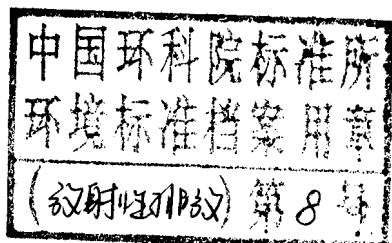 中国环科院标准所
环境标准档案用章
(放射性排放) 第 8 号